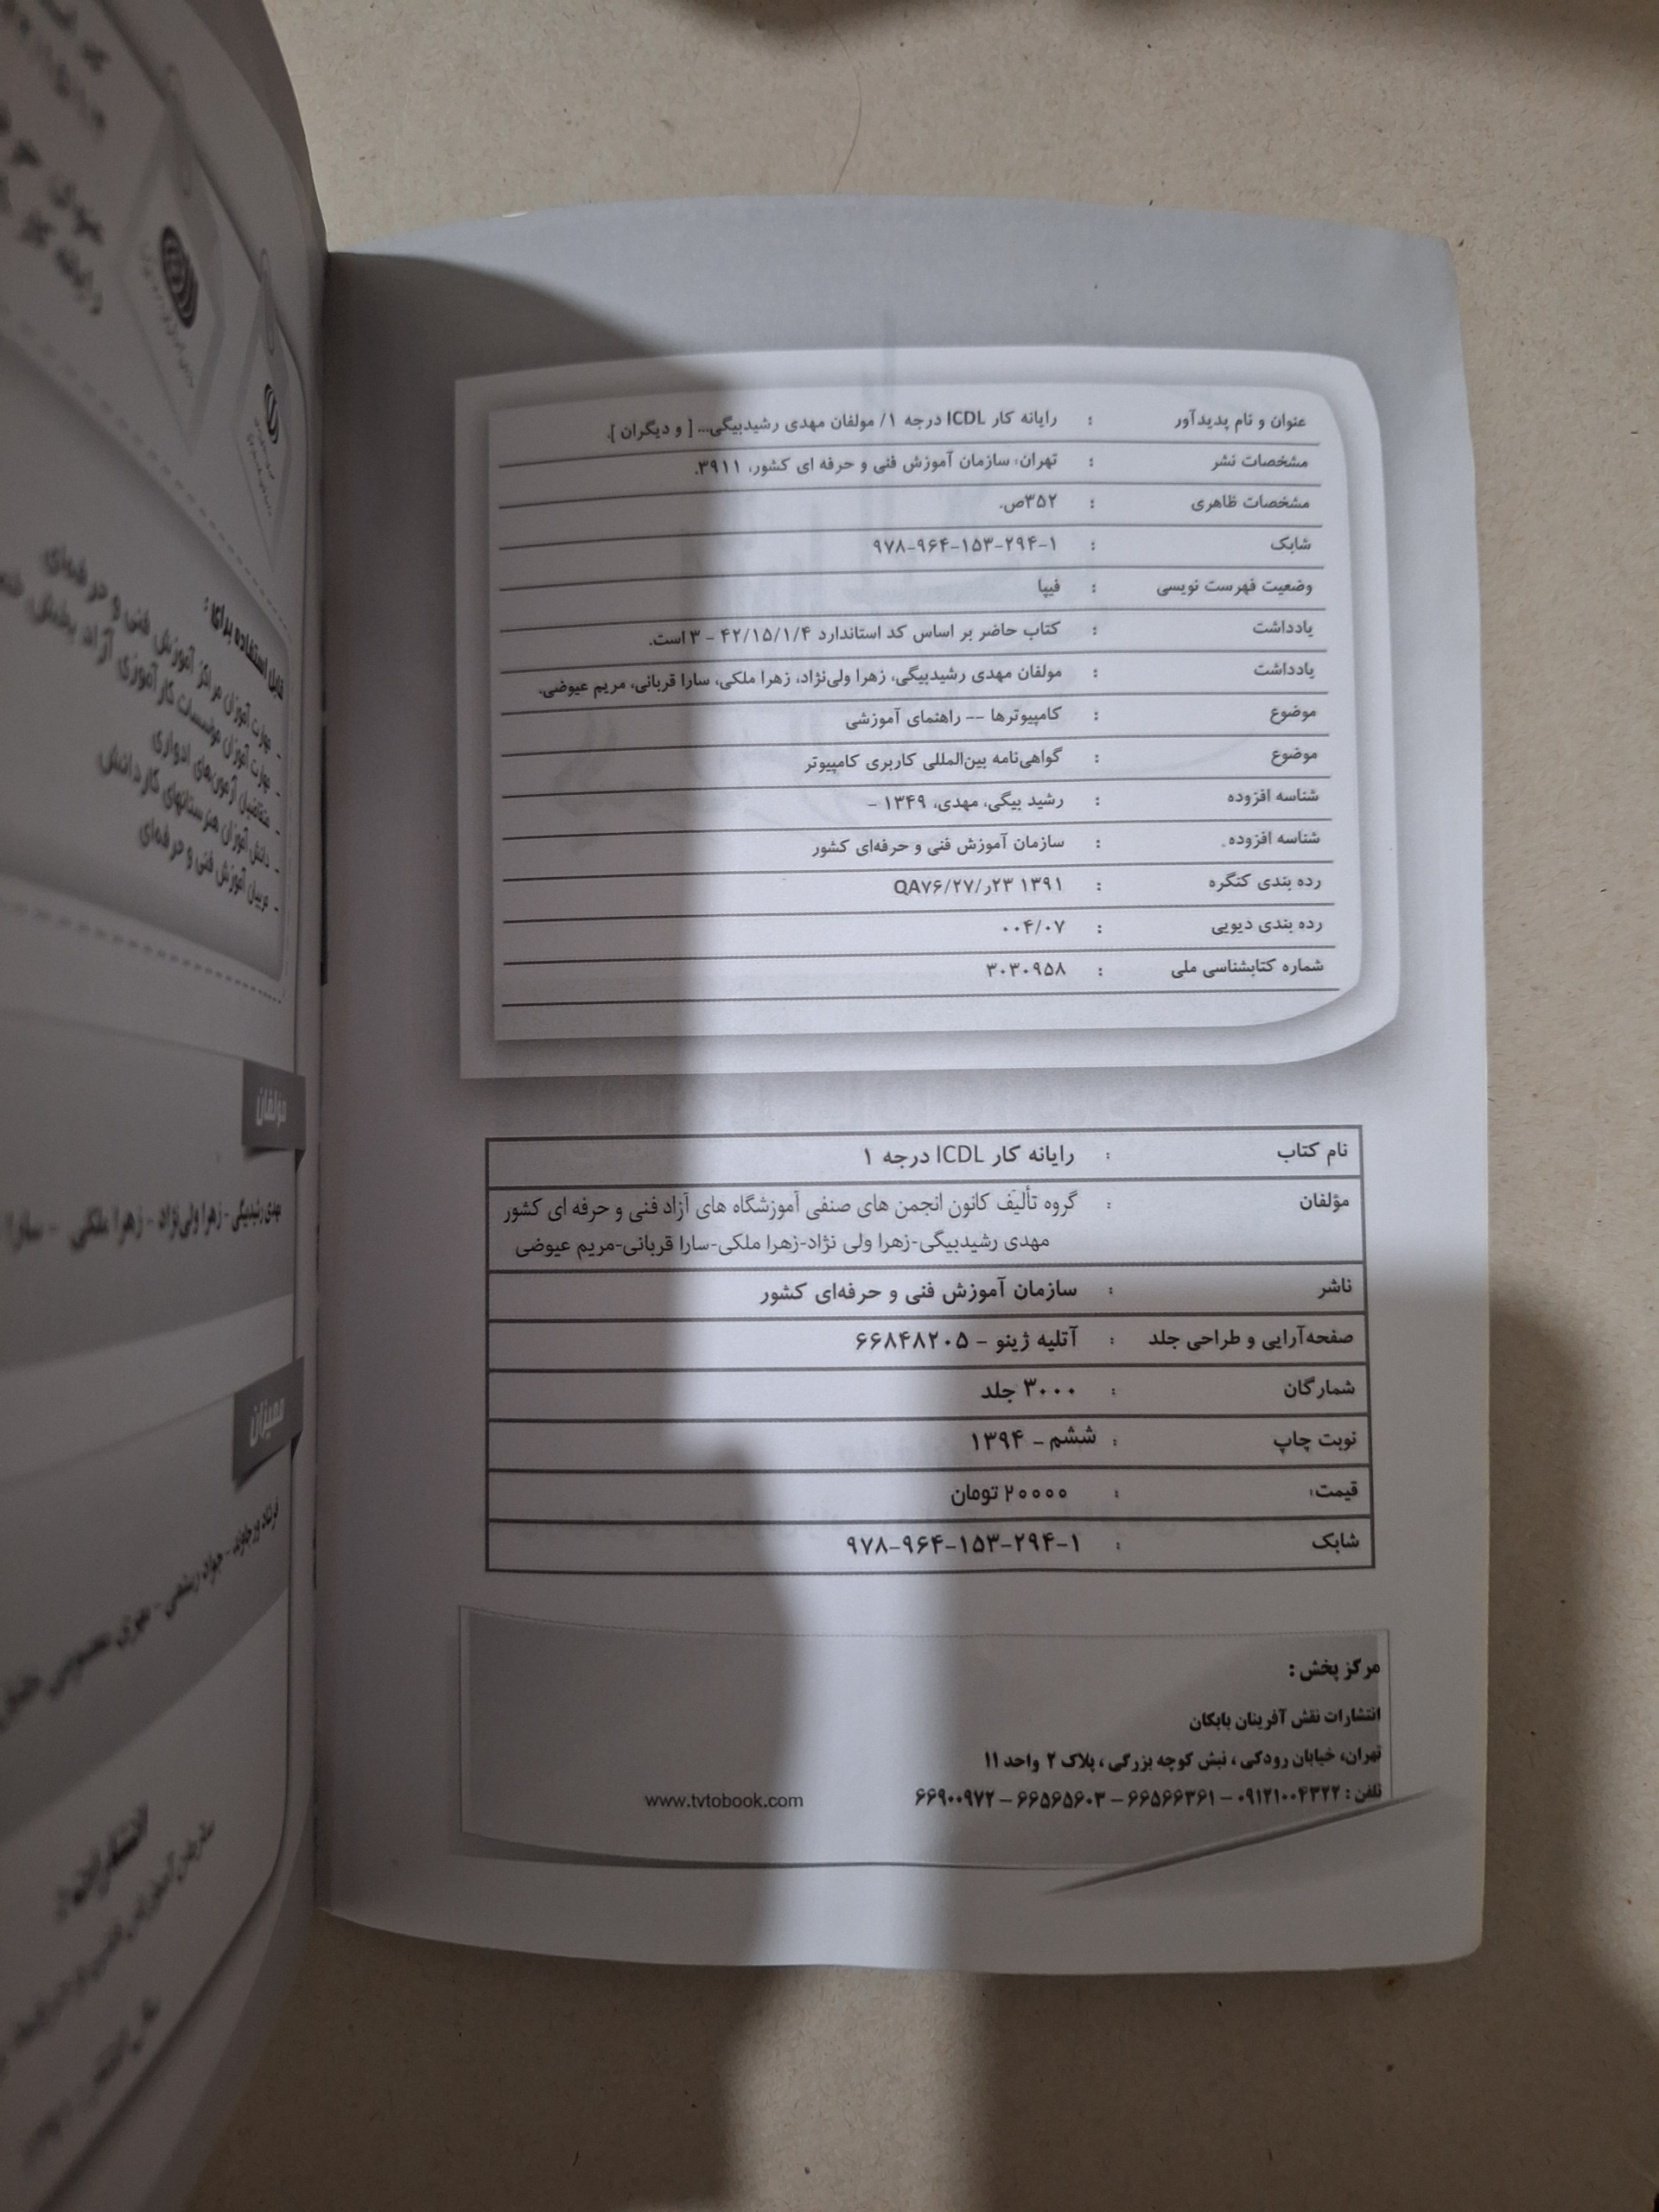 عنوان و نام پدیدآور : رایانه کار ICDL درجه ۱/ مولفان مهدی رشیدبیگی... [ و دیگران ].
مشخصات نشر : تهران: سازمان آموزش فنی و حرفه ای کشور، ۳۹۱۱.
مشخصات ظاهری : ۳۵۲ص.
شابک : ۹۷۸-۹۶۴-۱۵۳-۲۹۴-۱
وضعیت فهرست نویسی : فیپا
یادداشت : کتاب حاضر بر اساس کد استاندارد ۴۲/۱۵/۱/۴ - ۳ است.
یادداشت : مولفان مهدی رشیدبیگی، زهرا ولی‌نژاد، زهرا ملکی، سارا قربانی، مریم عیوضی.
موضوع : کامپیوترها -- راهنمای آموزشی
موضوع : گواهی‌نامه بین‌المللی کاربری کامپیوتر
شناسه افزوده : رشید بیگی، مهدی، ۱۳۴۹ -
شناسه افزوده. : سازمان آموزش فنی و حرفه‌ای کشور
رده بندی کنگره : QA۷۶/۲۷/ر۲۳ ۱۳۹۱
رده بندی دیویی : ۰۰۴/۰۷
شماره کتابشناسی ملی : ۳۰۳۰۹۵۸
نام کتاب : رایانه کار ICDL درجه ۱
مؤلفان : گروه تألیف کانون انجمن های صنفی آموزشگاه های آزاد فنی و حرفه ای کشور
مهدی رشیدبیگی-زهرا ولی نژاد-زهرا ملکی-سارا قربانی-مریم عیوضی
ناشر : سازمان آموزش فنی و حرفه‌ای کشور
صفحه‌آرایی و طراحی جلد : آتلیه ژینو - ۶۶۸۴۸۲۰۵
شمارگان : ۳۰۰۰ جلد
نوبت چاپ : ششم - ۱۳۹۴
قیمت: : ۲۰۰۰۰ تومان
شابک : ۹۷۸-۹۶۴-۱۵۳-۲۹۴-۱
مرکز پخش :
انتشارات نقش آفرینان بابکان
تهران، خیابان رودکی ، نبش کوچه بزرگی ، پلاک ۲ واحد ۱۱
تلفن : ۰۹۱۲۱۰۰۴۳۲۲ - ۶۶۵۶۶۳۶۱ - ۶۶۵۶۵۶۰۳ - ۶۶۹۰۰۹۷۲ www.tvtobook.com
قابل استفاده برای :
- مهارت آموزان مراکز آموزش فنی و حرفه‌ای
- مهارت آموزان موسسات کارآموزی آزاد
- متقاضیان آزمون‌های ادواری
- دانش آموزان هنرستانهای کاردانش
- مربیان آموزش فنی و حرفه‌ای
مولفان
مهدی رشیدبیگی - زهرا ولی‌نژاد - زهرا ملکی - سارا
ممیزان